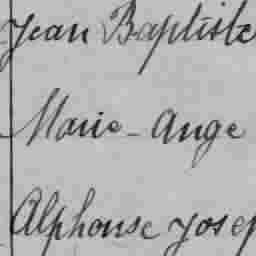 Jean Baptiste
Marie-Ange
Alphonse Josep